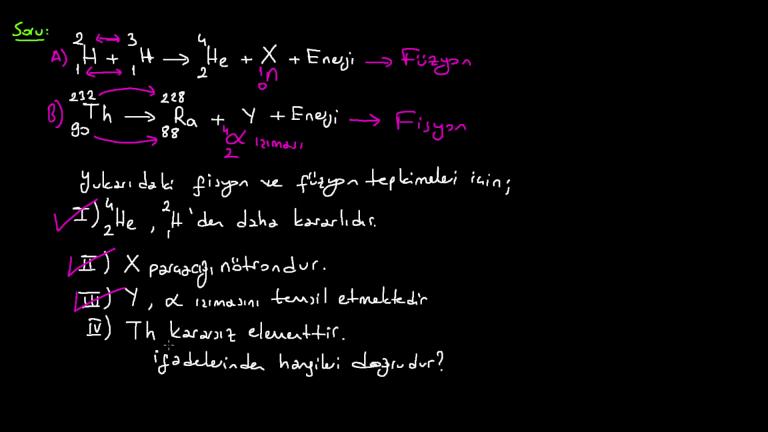 Soru:
A) ²₁H + ³₁H → ⁴₂He + X + Enerji → Füzyon
¹₀n
B) ²³²₉₀Th → ²²⁸₈₈Ra + Y + Enerji → Fisyon
⁴₂α ızıması
Yukarıdaki fisyon ve füzyon tepkimeleri için;
I) ⁴₂He, ²₁H'den daha kararlıdır.
II) X parçacığı nötrondur.
III) Y, α ızımasını temsil etmektedir
IV) Th kararsız elementtir.
ifadelerinden hangileri doğrudur?